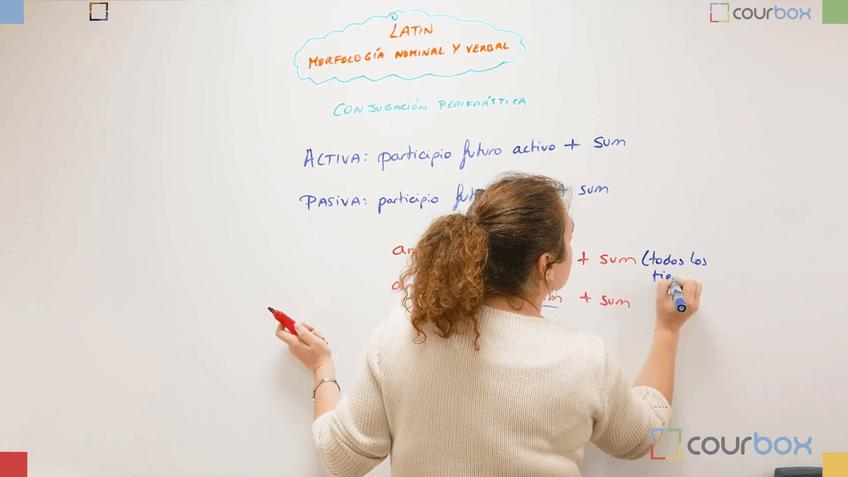 courbox
LATIN
MORFOLOGÍA NOMINAL Y VERBAL
CONJUGACIÓN PERIFRÁSTICA
ACTIVA: participio futuro activo + sum
PASIVA: participio + sum
+ sum (todos los
+ sum
courbox